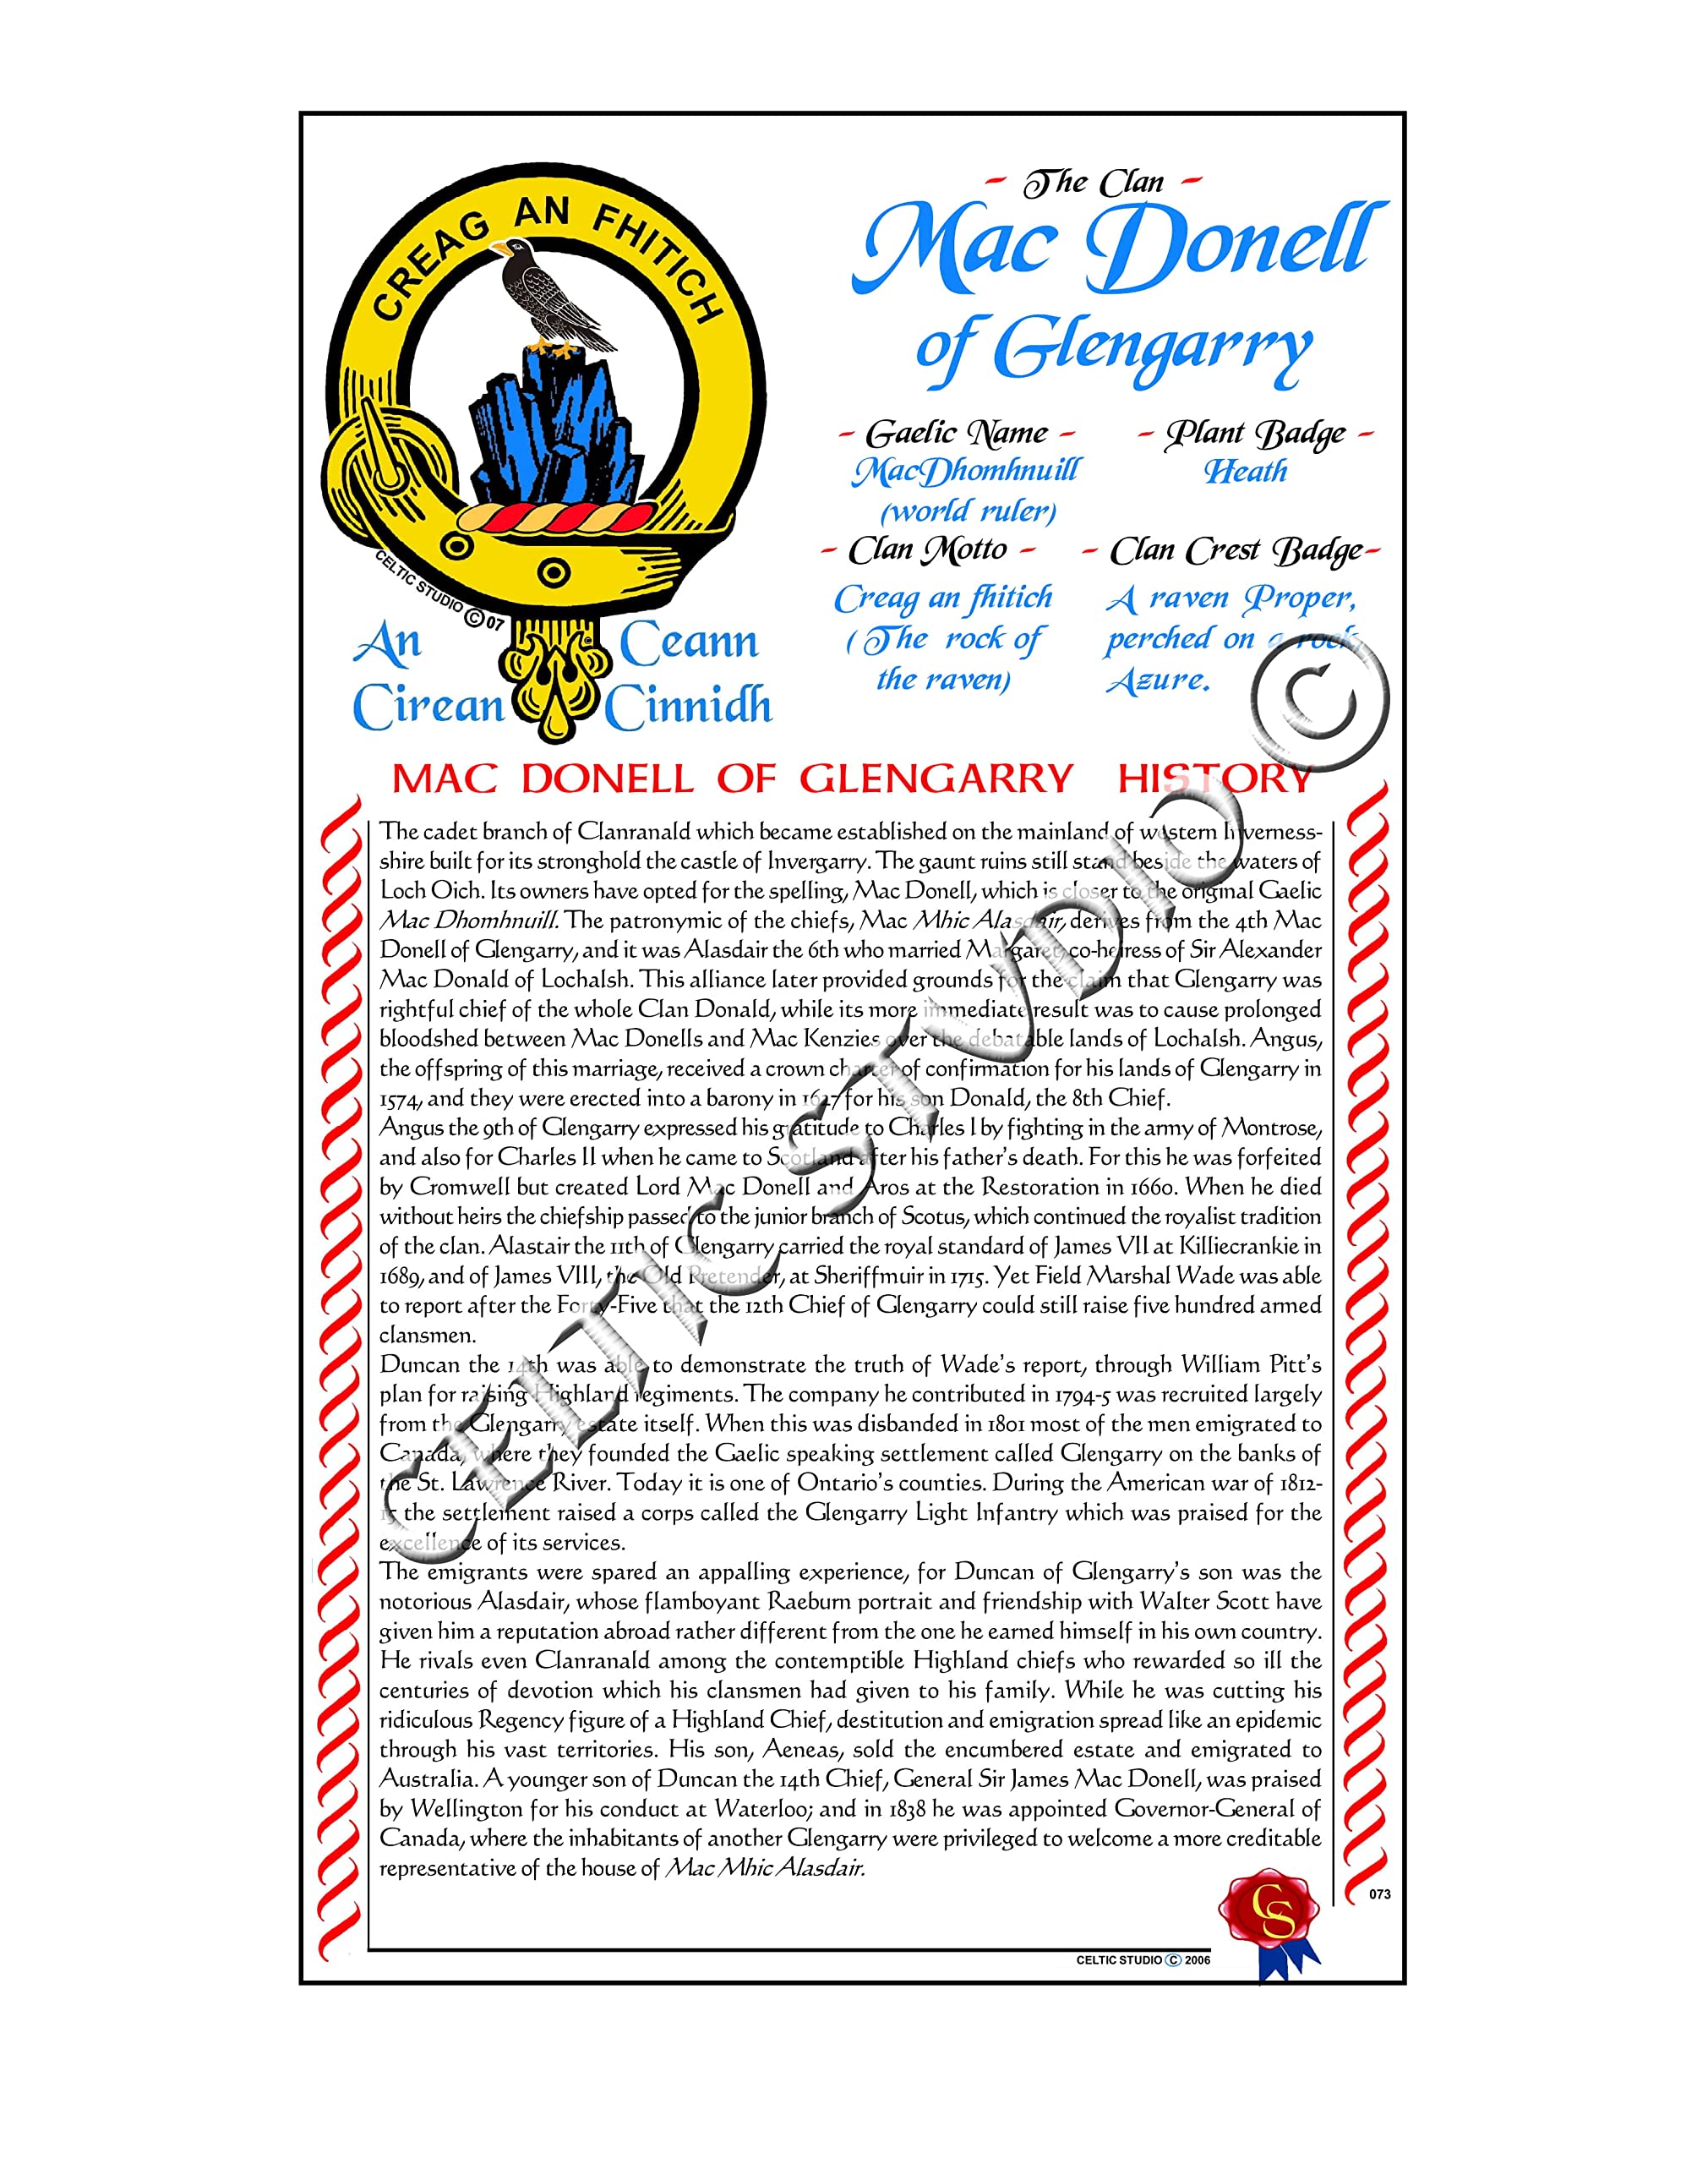 CREAG AN FHITICH
CELTIC STUDIO © 07
An Ceann
Cirean Cinnidh
- The Clan -
Mac Donell
of Glengarry
- Gaelic Name -
MacDhomhnuill
(world ruler)
- Plant Badge -
Heath
- Clan Motto -
Creag an fhitich
( The rock of
the raven)
- Clan Crest Badge-
A raven Proper,
perched on a rock,
Azure.
©
MAC DONELL OF GLENGARRY HISTORY
The cadet branch of Clanranald which became established on the mainland of western Inverness-
shire built for its stronghold the castle of Invergarry. The gaunt ruins still stand beside the waters of
Loch Oich. Its owners have opted for the spelling, Mac Donell, which is closer to the original Gaelic
Mac Dhomhnuill. The patronymic of the chiefs, Mac Mhic Alasdair, derives from the 4th Mac
Donell of Glengarry, and it was Alasdair the 6th who married Margaret, co-heiress of Sir Alexander
Mac Donald of Lochalsh. This alliance later provided grounds for the claim that Glengarry was
rightful chief of the whole Clan Donald, while its more immediate result was to cause prolonged
bloodshed between Mac Donells and Mac Kenzies over the debatable lands of Lochalsh. Angus,
the offspring of this marriage, received a crown charter of confirmation for his lands of Glengarry in
1574, and they were erected into a barony in 1627 for his son Donald, the 8th Chief.
Angus the 9th of Glengarry expressed his gratitude to Charles I by fighting in the army of Montrose,
and also for Charles II when he came to Scotland after his father's death. For this he was forfeited
by Cromwell but created Lord Mac Donell and Aros at the Restoration in 1660. When he died
without heirs the chiefship passed to the junior branch of Scotus, which continued the royalist tradition
of the clan. Alastair the 11th of Glengarry carried the royal standard of James VII at Killiecrankie in
1689, and of James VIII, the Old Pretender, at Sheriffmuir in 1715. Yet Field Marshal Wade was able
to report after the Forty-Five that the 12th Chief of Glengarry could still raise five hundred armed
clansmen.
Duncan the 14th was able to demonstrate the truth of Wade's report, through William Pitt's
plan for raising Highland regiments. The company he contributed in 1794-5 was recruited largely
from the Glengarry estate itself. When this was disbanded in 1801 most of the men emigrated to
Canada, where they founded the Gaelic speaking settlement called Glengarry on the banks of
the St. Lawrence River. Today it is one of Ontario's counties. During the American war of 1812-
15 the settlement raised a corps called the Glengarry Light Infantry which was praised for the
excellence of its services.
The emigrants were spared an appalling experience, for Duncan of Glengarry's son was the
notorious Alasdair, whose flamboyant Raeburn portrait and friendship with Walter Scott have
given him a reputation abroad rather different from the one he earned himself in his own country.
He rivals even Clanranald among the contemptible Highland chiefs who rewarded so ill the
centuries of devotion which his clansmen had given to his family. While he was cutting his
ridiculous Regency figure of a Highland Chief, destitution and emigration spread like an epidemic
through his vast territories. His son, Aeneas, sold the encumbered estate and emigrated to
Australia. A younger son of Duncan the 14th Chief, General Sir James Mac Donell, was praised
by Wellington for his conduct at Waterloo; and in 1838 he was appointed Governor-General of
Canada, where the inhabitants of another Glengarry were privileged to welcome a more creditable
representative of the house of Mac Mhic Alasdair.
CELTIC STVDIO
CS
073
CELTIC STUDIO © 2006